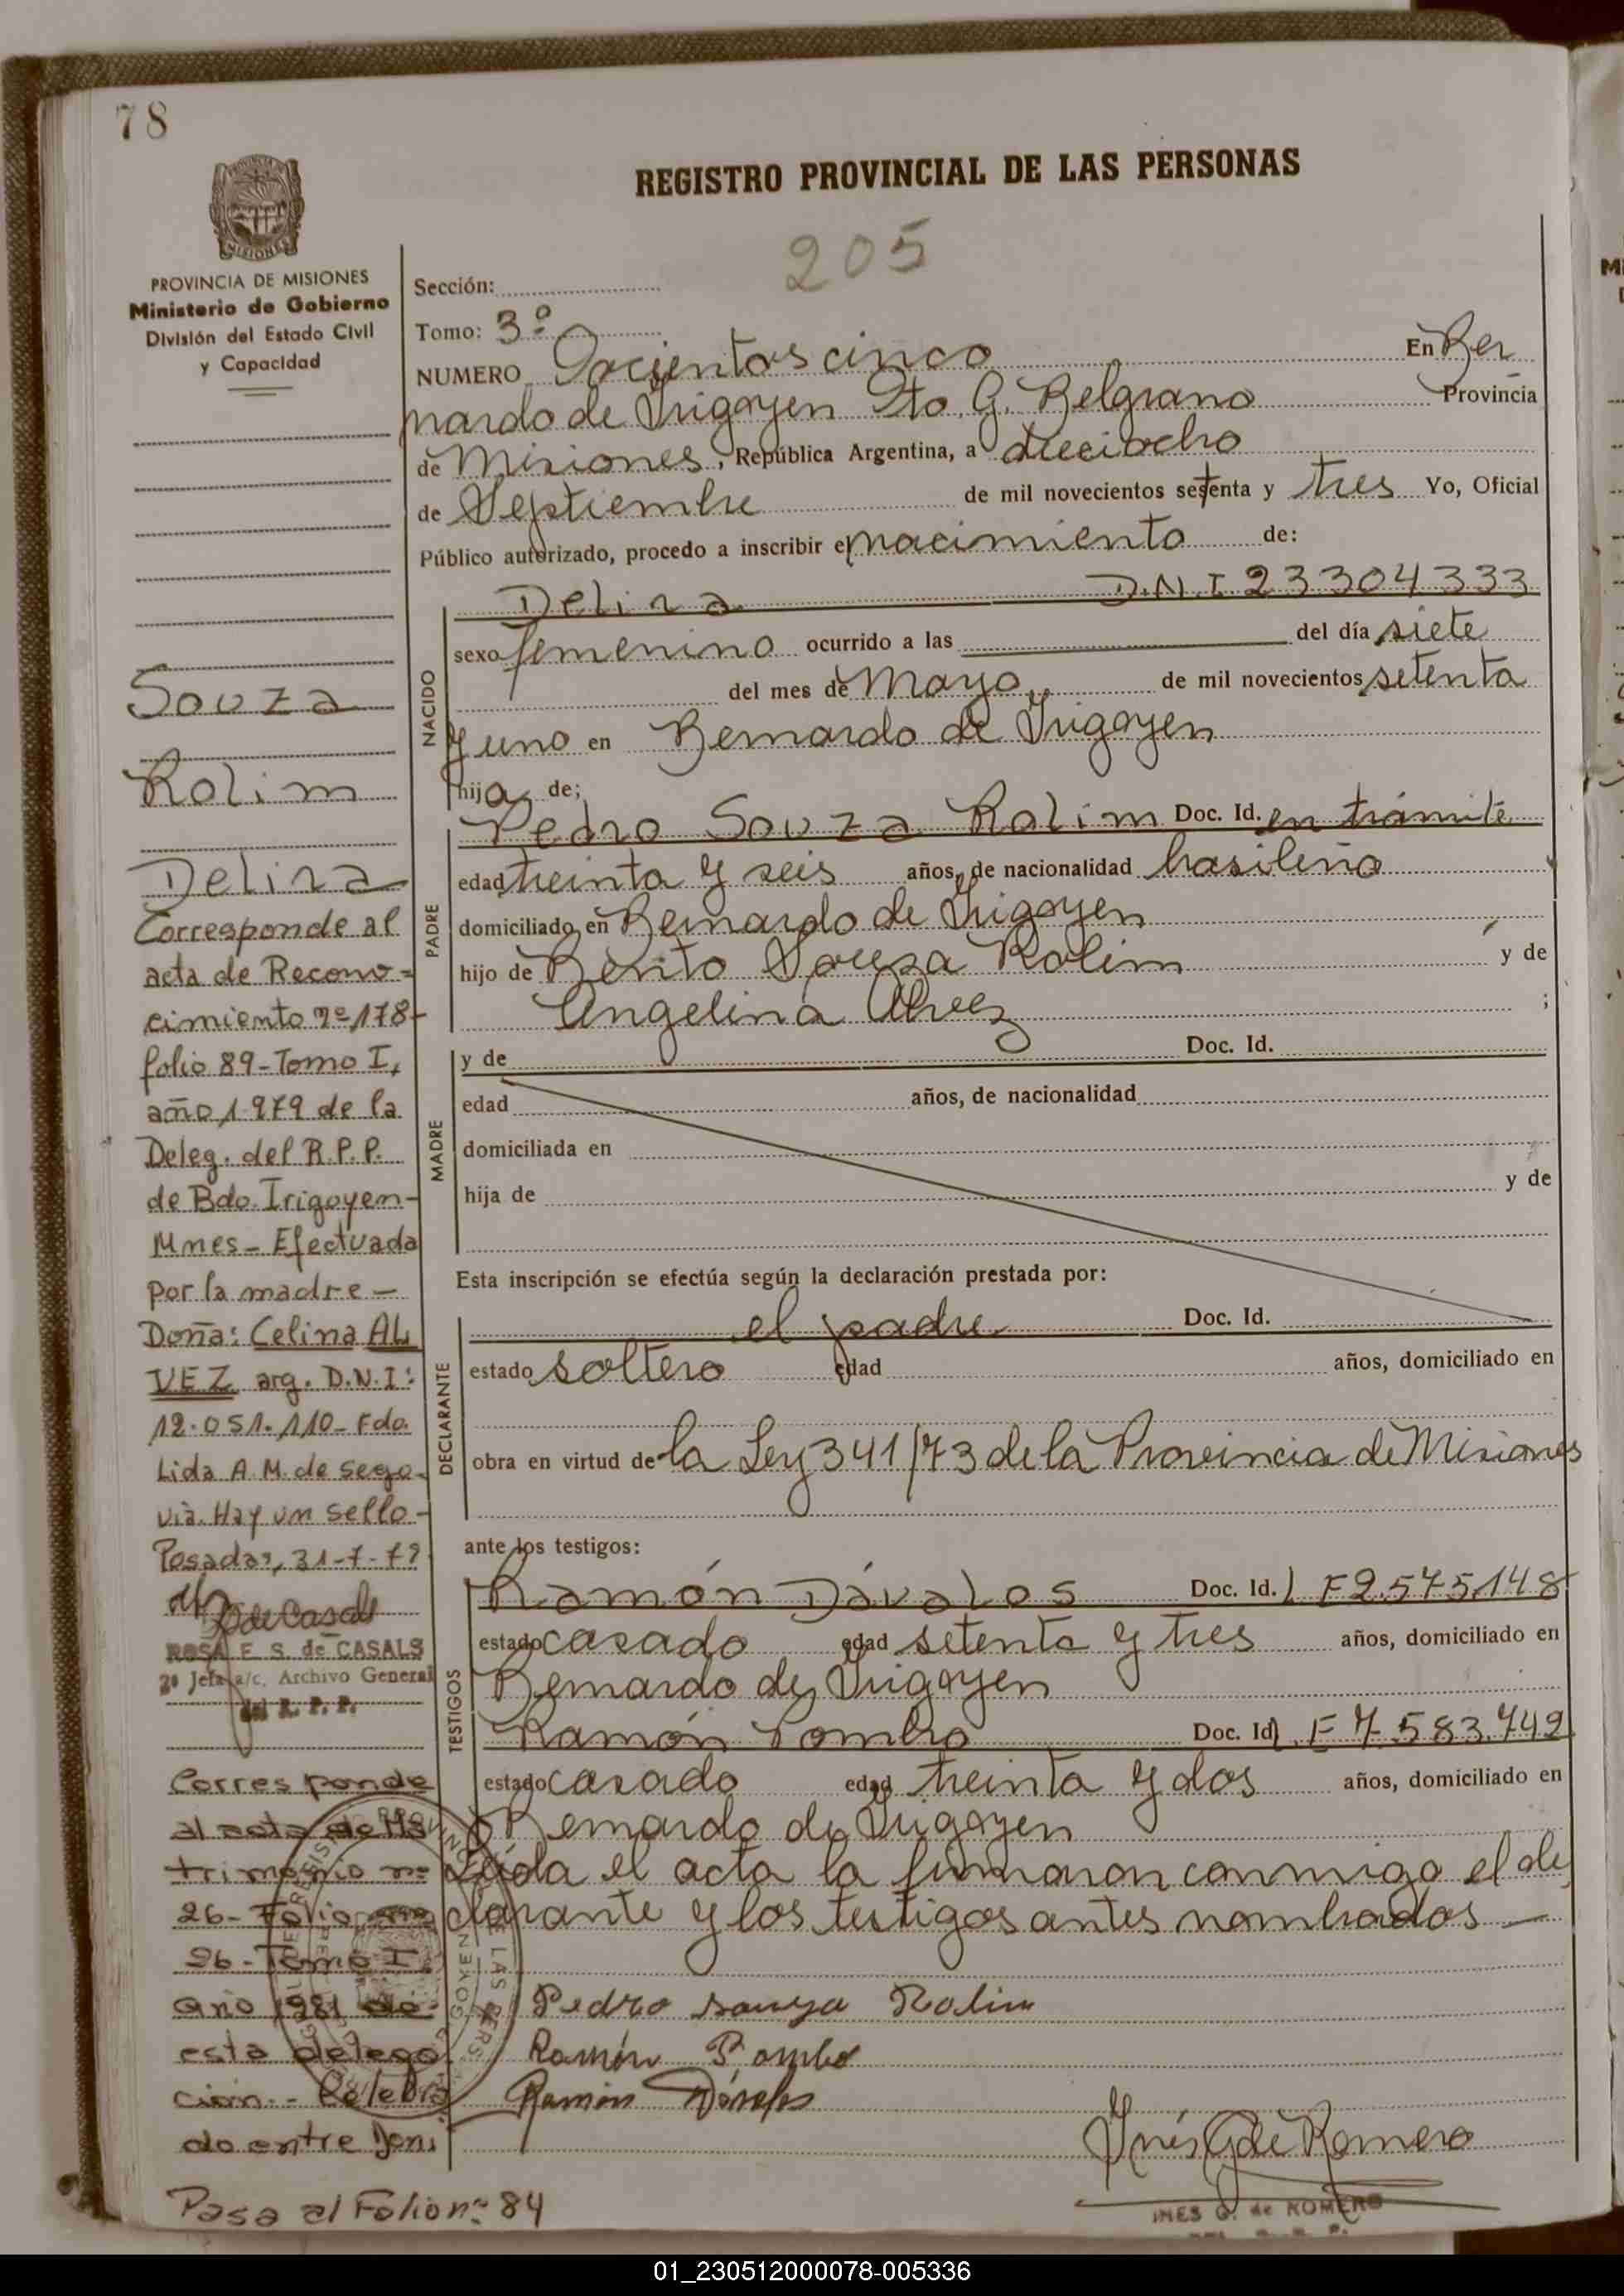 78
REGISTRO PROVINCIAL DE LAS PERSONAS
205
MISIONES
PROVINCIA DE MISIONES
Ministerio de Gobierno
División del Estado Civil
y Capacidad
Souza
Rolim
Delira
Corresponde al
acta de Recono=
cimiento nº 178-
folio 89-Tomo I,
año 1.979 de la
Deleg. del R.P.P.
de Bdo. Irigoyen-
Mnes- Efectuada
por la madre -
Doña: Celina AL
VEZ arg. D.N.I:
12.051.110- Fdo.
Lida A.M. de Sego-
via. Hay un sello-
Posadas, 31-7-79
ROSA E. S. de CASALS
2º Jefa a/c. Archivo General
del R. P. P.
Corresponde
al acta de Ma
trimonio nº
26- Folio
26- Tomo I
año 1981 de
esta delega
ción.- Celebra
do entre Don:
Pasa al Folio nº 84
Sección:
Tomo: 3º
NUMERO Docientos cinco En Ber
nardo de Irigoyen Dto. G. Belgrano Provincia
de Misiones, República Argentina, a dieciocho
de Septiembre de mil novecientos setenta y tres Yo, Oficial
Público autorizado, procedo a inscribir el nacimiento de:
NACIDO
Delira D.N.I. 23304333
sexo femenino ocurrido a las del día siete
del mes de Mayo de mil novecientos setenta
y uno en Bernardo de Irigoyen
hija de;
PADRE
Pedro Souza Rolim Doc. Id. en trámite
edad treinta y seis años, de nacionalidad brasileño
domiciliado en Bernardo de Irigoyen
hijo de Bento Souza Rolim y de
Angelina Alvez ;
MADRE
y de Doc. Id.
edad años, de nacionalidad
domiciliada en
hija de y de
Esta inscripción se efectúa según la declaración prestada por:
DECLARANTE
el padre Doc. Id.
estado soltero edad años, domiciliado en
obra en virtud de la Ley 341/73 de la Provincia de Misiones
ante los testigos:
TESTIGOS
Ramón Dávalos Doc. Id. LE 2.575.148
estado casado edad setenta y tres años, domiciliado en
Bernardo de Irigoyen
Ramón Pombo Doc. Id. LE 7.583.742
estado casado edad treinta y dos años, domiciliado en
Bernardo de Irigoyen
Leida el acta la firmaron conmigo el de
clarante y los testigos antes nombrados -
Pedro souza Rolim
Ramón Pombo
Ramón Dávalos
Inés G de Romero
INES G. de ROMERO
01_230512000078-005336